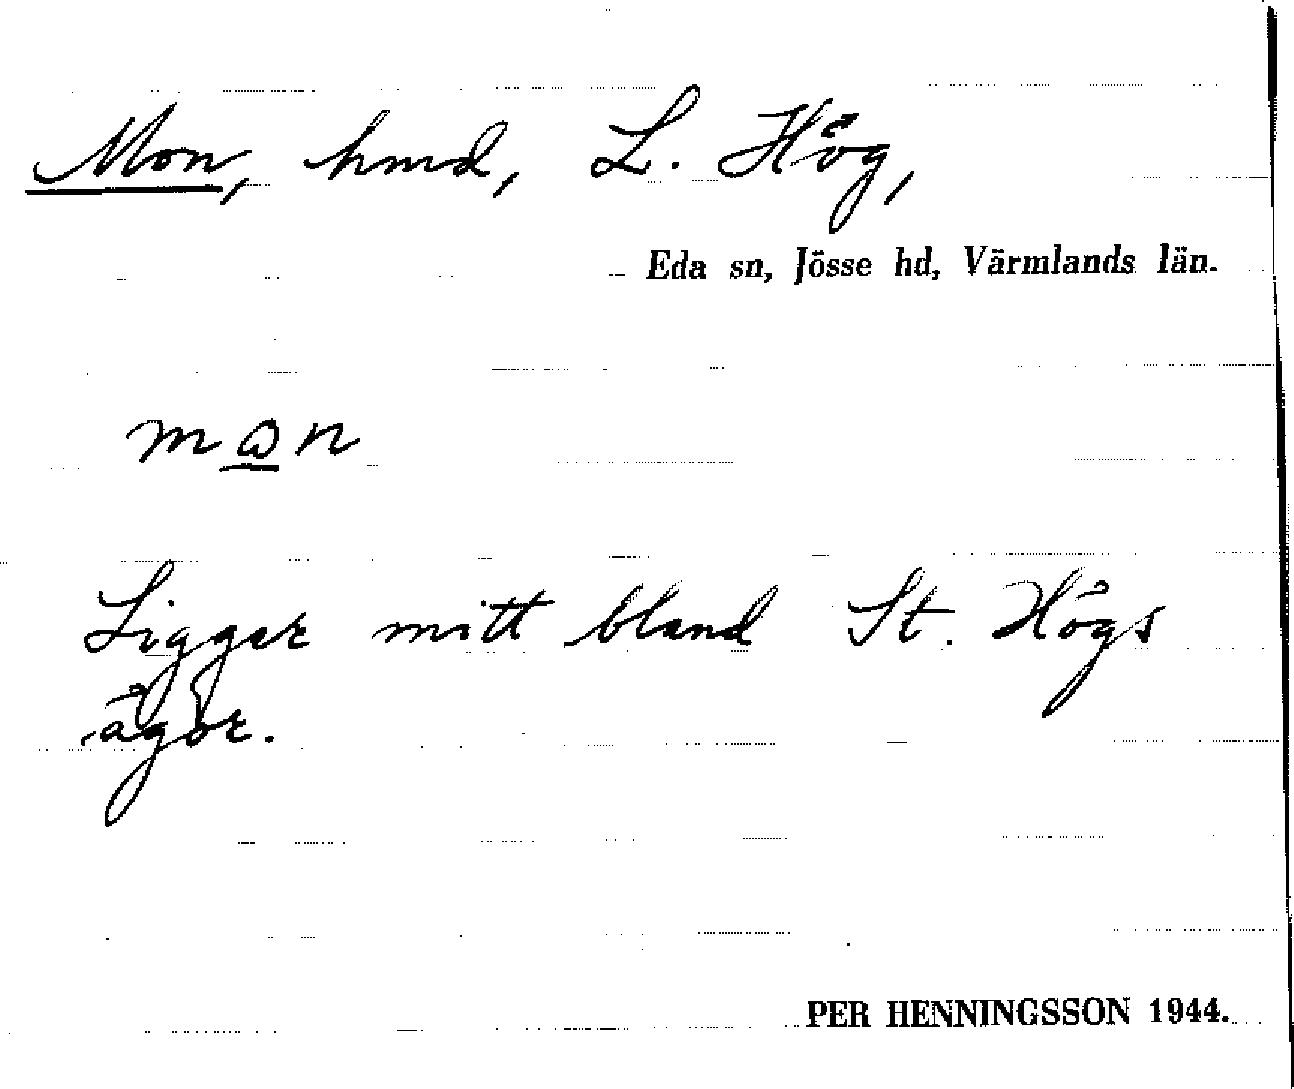 Mon, hmd, L. Hög,
Eda sn, Jösse hd, Värmlands län.
Ligger mitt bland St. Högs
ägor.
PER HENNINGSSON 1944.